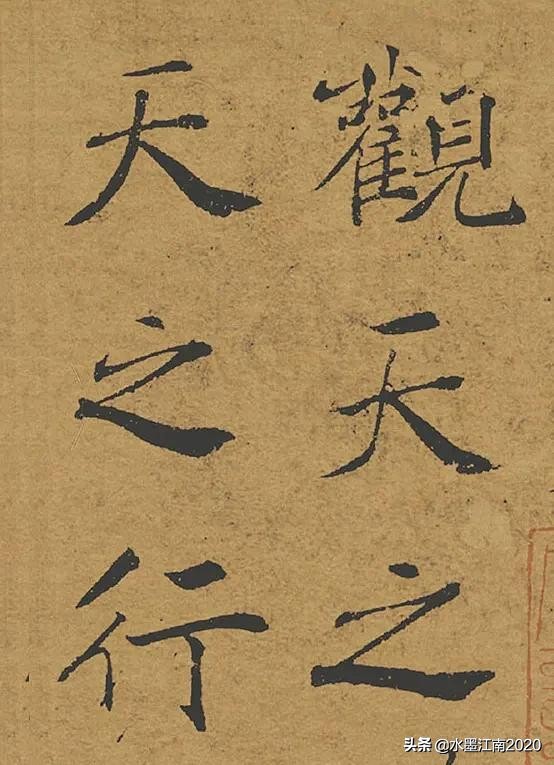 觀天之
天之行
头条 @水墨江南2020